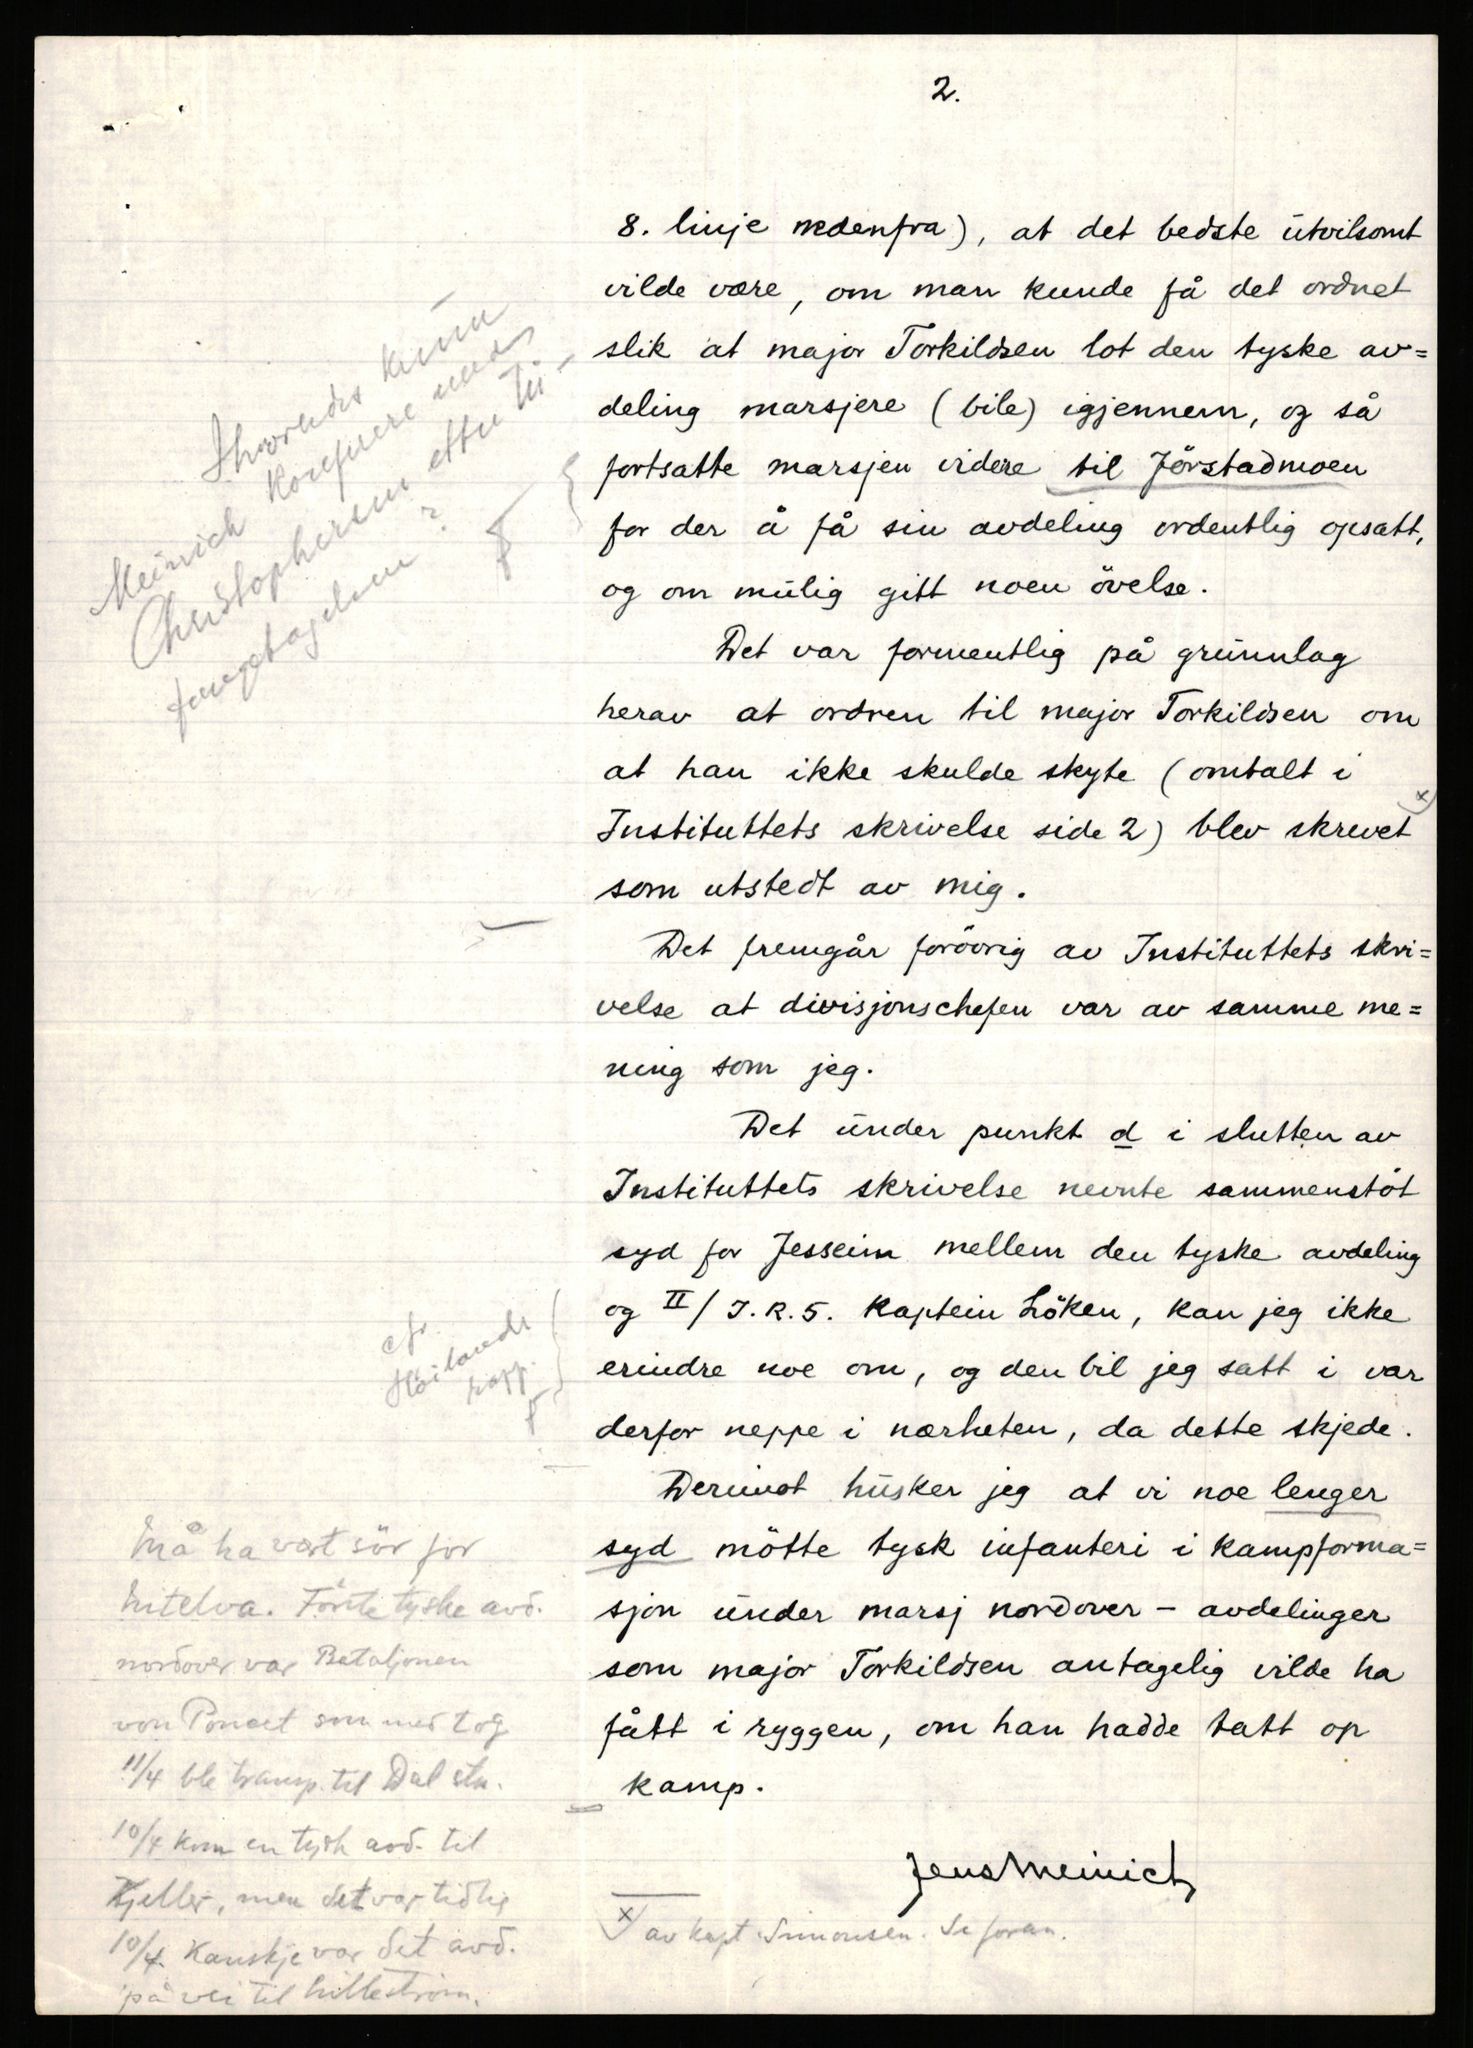 2.
8. linje nedenfra), at det bedste utvilsomt
vilde være, om man kunde få det ordnet
slik at major Torkildsen lot den tyske av=
deling marsjere (bile) igjennem, og så
fortsatte marsjen videre til Jörstadmoen
for der å få sin avdeling ordentlig opsatt,
og om mulig gitt noen övelse.
Det var formentlig på grunnlag
herav at ordren til major Torkildsen om
at han ikke skulde skyte (omtalt i
Instituttets skrivelse side 2) blev skrevet x)
som utstedt av mig.
Det fremgår forövrig av Instituttets skri=
velse at divisjonschefen var av samme me=
ning som jeg.
Det under punkt d i slutten av
Instituttets skrivelse nevnte sammenstöt
syd for Jesseim mellem den tyske avdeling
og II/J.R.5. Kaptein Löken, kan jeg ikke
erindre noe om, og den bil jeg satt i var
derfor neppe i nærheten, da dette skjede.
Derimot husker jeg at vi noe lenger
syd mötte tysk infanteri i kampforma=
sjon under marsj nordover - avdelinger
som major Torkildsen antagelig vilde ha
fått i ryggen, om han hadde tatt op
kamp.
Jens Meinich
x) av kapt. Simonsen. Se foran.
Hvorledes kunde
Meinich konferere med
Christophersen efter til-
fangetagelsen?
cfr.
Höilands
rapp.
Må ha vært sör for
Nitelva. Förste tyske avd.
nordover var Bataljonen
von Poncet som med tog
11/4 ble transp. til Dal stn.
10/4 kom en tysk avd. til
Kjeller, men det var tidlig
10/4. Kanskje var det avd.
på vei til Lilleström.